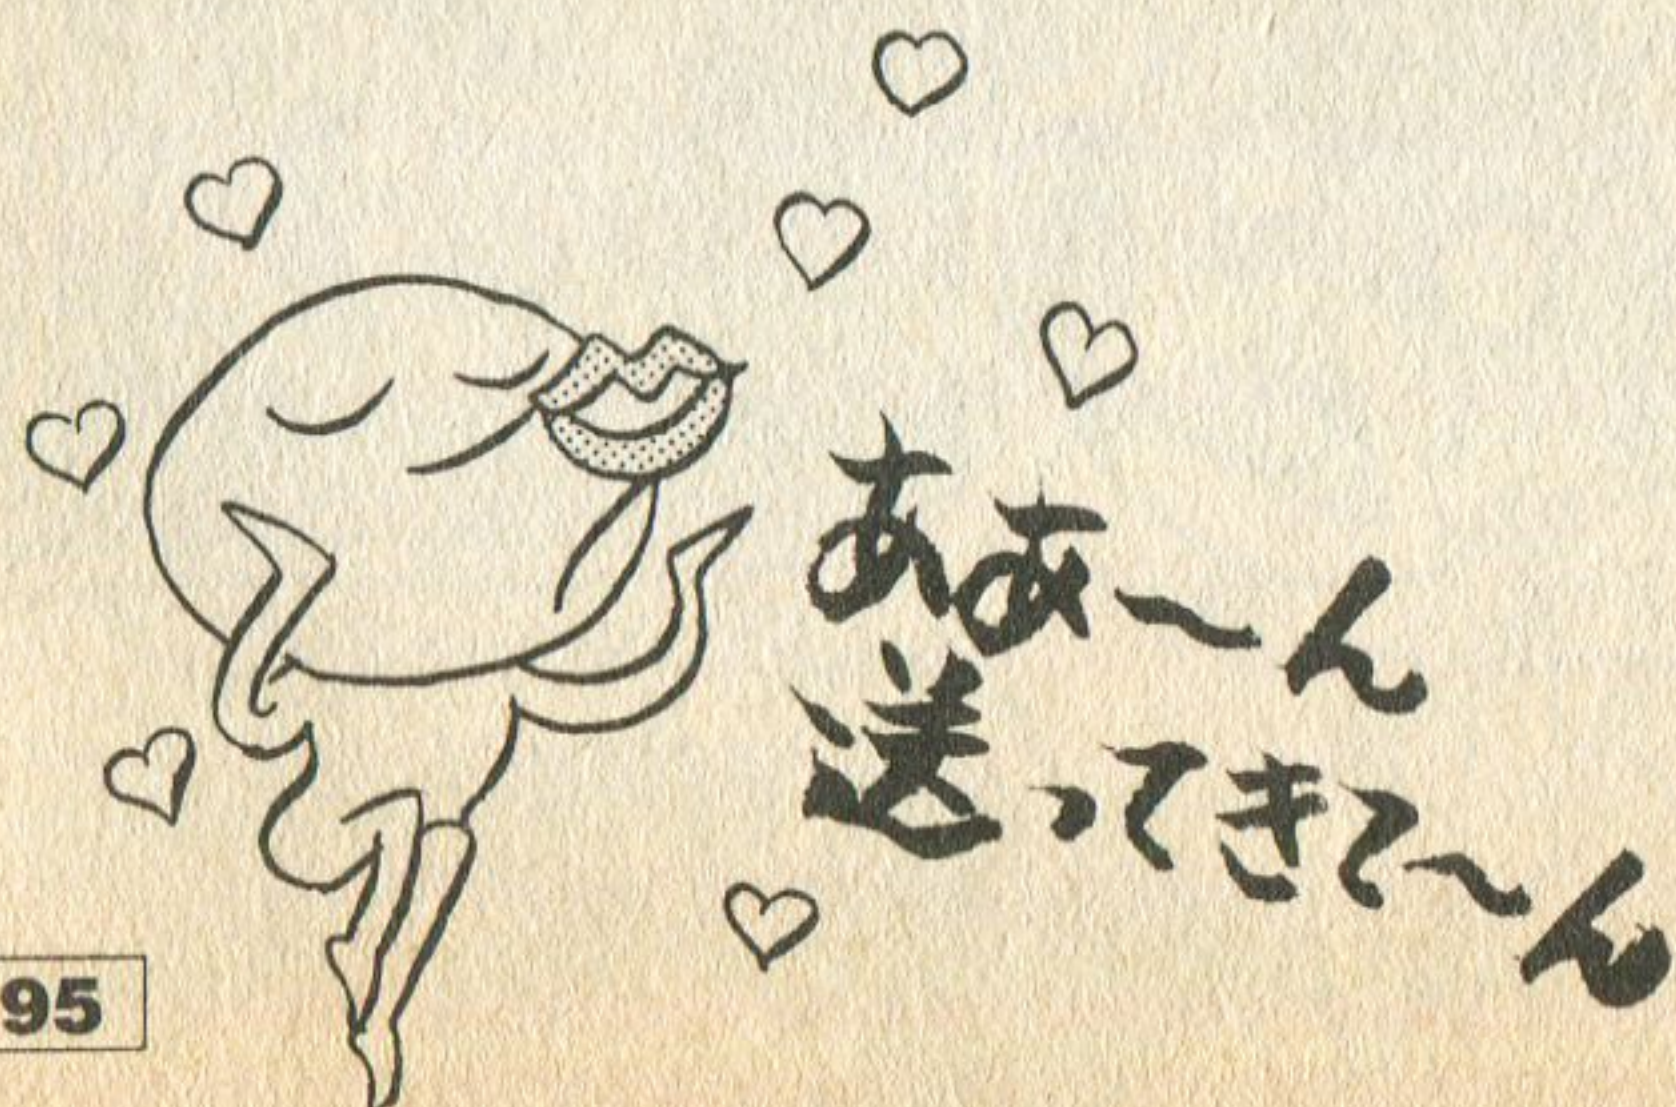 ああ〜ん
送ってきて〜ん
95